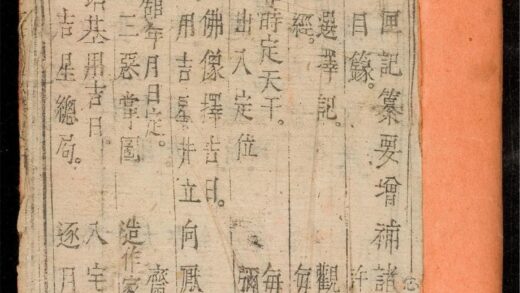 匣記纂要增補諸
目錄。 許
選擇記。 觀
經。 每
時定天干。 每
出入定位 彌
佛像擇吉日。
用吉 井立向 厭
年月日定。 齋
三惡 圖 造作
基用吉日。 入宅
吉星總局。 逐月